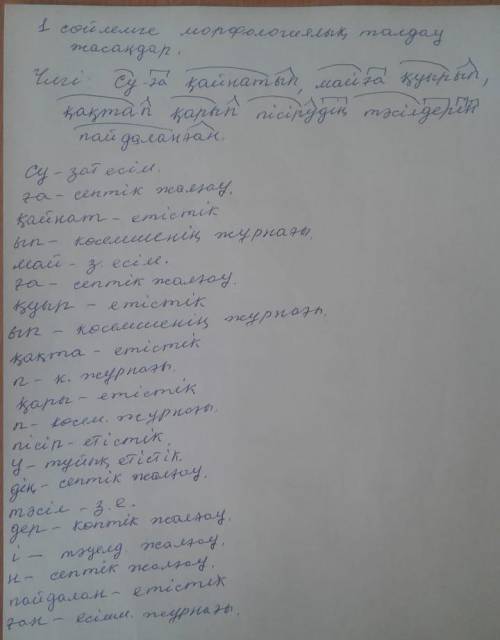 1 сөйлемге морфологиялық талдау
жасаңдар.
Үлгі: Су-ға қайнатып, майға қуырып,
қақтап қарып пісірудің тәсілдерін
пайдаланған.
Су - зат есім.
ға - септік жалғау.
қайнат - етістік
ып - көсемшенің жұрнағы.
май - з. есім.
ға - септік жалғау.
қуыр - етістік
ып - көсемшенің жұрнағы.
қақта - етістік
п - к. жұрнағы.
қары - етістік
п - көсем. жұрнағы.
пісір - етістік.
у - тұйық етістік.
дің - септік жалғау.
тәсіл - з. е.
дер - көптік жалғау.
і - тәуелд. жалғау.
н - септік жалғау.
пайдалан - етістік
ған - есімш. жұрнағы.